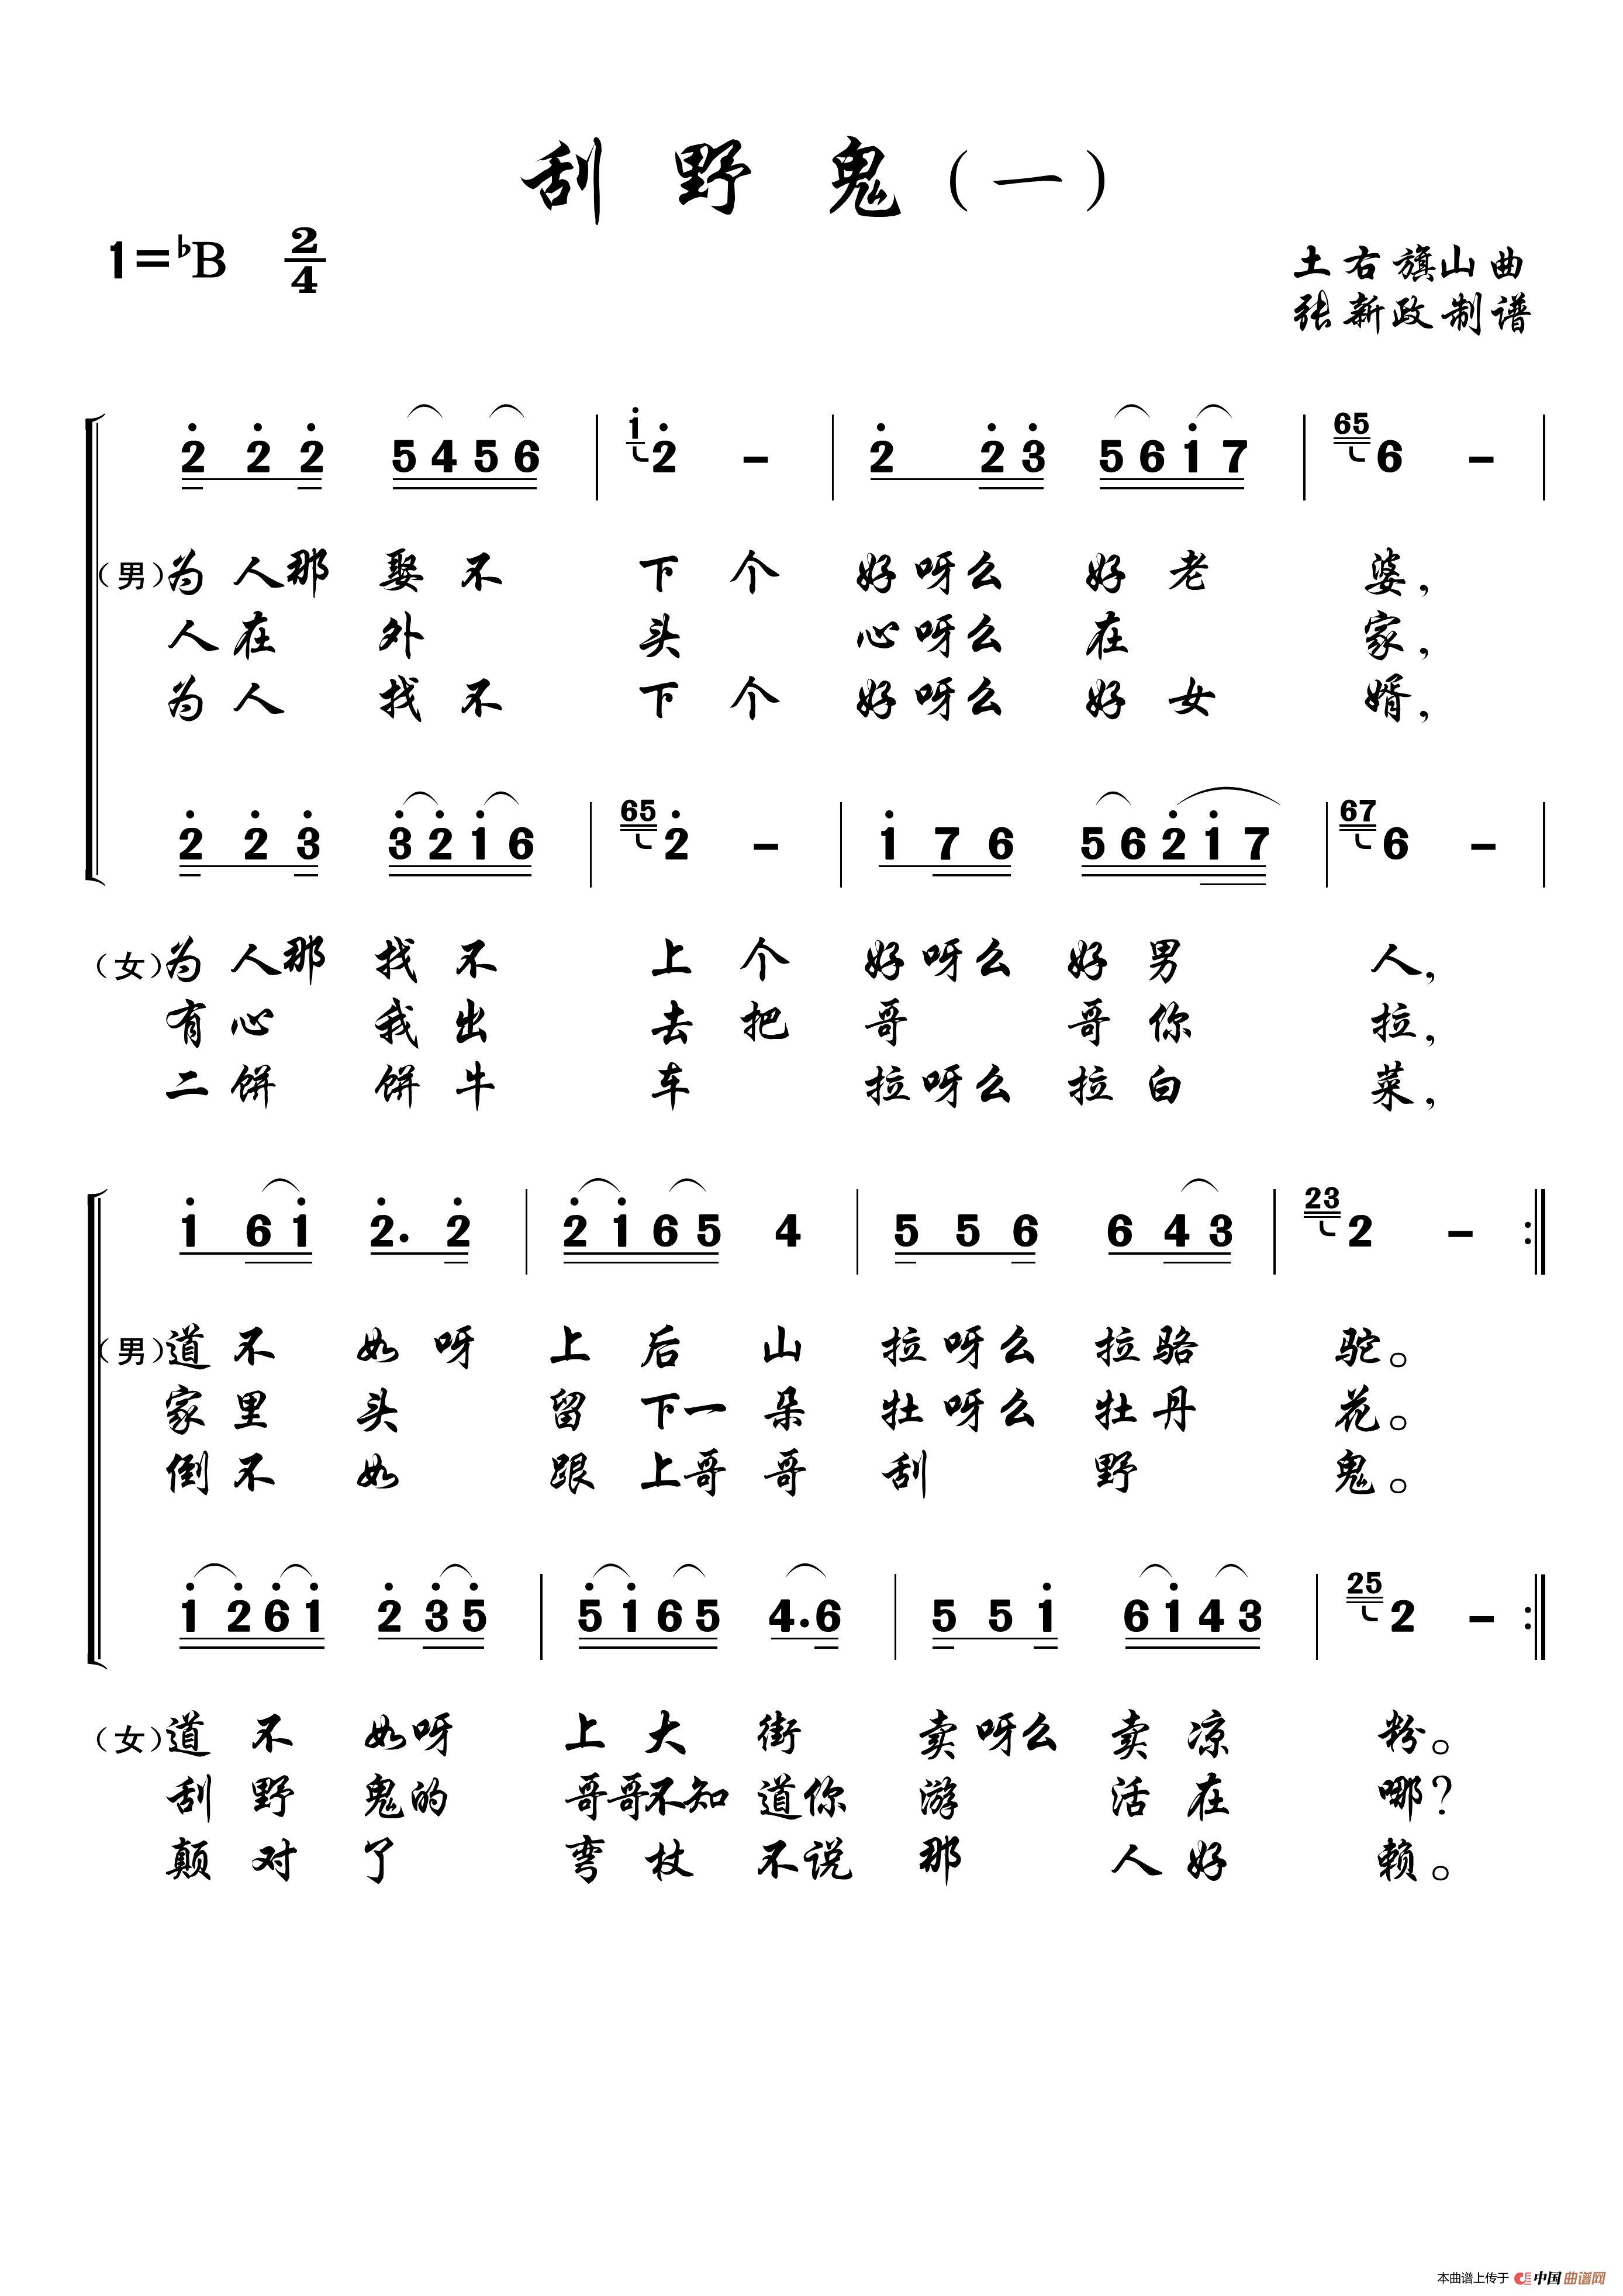 刮野鬼（一）
1=♭B 2/4
土右旗山曲
张新政制谱
2̇ 2̇ 2̇ 5 4 5 6 | 1̇ 2̇ – | 2̇ 2̇ 3̇ 5 6 1̇ 7 | 65 6 – |
（男）为人那娶不下个好呀么好老婆，
人在外头心呀么在家，
为人找不下个好呀么好女婿，
2̇ 2̇ 3̇ 3̇ 2̇ 1̇ 6 | 65 2̇ – | 1̇ 7 6 5 6 2̇ 1̇ 7 | 67 6 – |
（女）为人那找不上个好呀么好男人，
有心我出去把哥哥你拉，
二饼饼牛车拉呀么拉白菜，
1̇ 6 1̇ 2̇. 2̇ | 2̇ 1̇ 6 5 4 | 5 5 6 6 4 3 | 23 2 – :‖
（男）道不如呀上后山拉呀么拉骆驼。
家里头留下一朵牡呀么牡丹花。
倒不如跟上哥哥刮野鬼。
1̇ 2̇ 6̇ 1̇ 2̇ 3̇ 5̇ | 5̇ 1̇ 6 5 4.6 | 5 5 1̇ 6 1̇ 4 3 | 25 2 – :‖
（女）道不如呀上大街卖呀么卖凉粉。
刮野鬼的哥哥不知道你游活在哪？
颠对了弯杖不说那人好赖。
本曲谱上传于 中国曲谱网